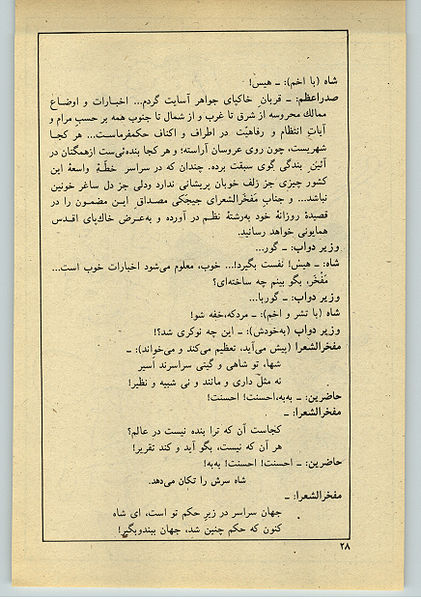 شاه (با اخم): ـ هیس!
صدراعظم: ـ قربانِ خاکپای جواهر آسایت گردم... اخبارات و اوضاع
ممالك محروسه از شرق تا غرب و از شمال تا جنوب همه بر حسبِ مرام و
آیاتِ انتظام و رفاهیّت در اطراف و اکناف حکمفرماست... هر کجا
شهریست، چون روی عروسان آراسته؛ و هر کجا بنده‌ئی‌ست ازهمگنان در
آئینِ بندگی گوی سبقت برده. چندان که در سراسر خطّهٔ واسعهٔ این
کشور چیزی جز زلف خوبان پریشانی ندارد ودلی جز دل ساغر خونین
نباشد... و جنابِ مَفخَرالشعرای جیجکی مصداق این مضمون را در
قصیدهٔ روزانهٔ خود به‌رشتهٔ نظم در آورده و به‌عرض خاك‌پای اقدس
همایونی خواهد رسانید.
وزیر دواب: ـ گور...
شاه: ـ هیش! نفست بگیرد!... خوب، معلوم می‌شود اخبارات خوب است...
مَفْخَر، بگو ببینم چه ساخته‌ای؟
وزیر دواب: ـ گوربا...
شاه (با تشر و اخم): ـ مردکه،خفه شو!
وزیر دواب (به‌خودش): ـ این چه نوکری شد؟!
مفخرالشعرا (پیش می‌آید، تعظیم می‌کند و می‌خواند): ـ
شها، تو شاهی و گیتی سراسرند اَسیر
نه مثلْ داری و مانند و نی شبیه و نظیر!
حاضرین: ـ به‌به،احسنت! احسنت!
مفخرالشعرا: ـ
کجاست آن که ترا بنده نیست در عالم؟
هر آن که نیست، بگو آید و کند تقریر!
حاضرین: ـ احسنت! احسنت! به‌به!
شاه سرش را تکان می‌دهد.
مفخرالشعرا: ـ
جهان سراسر در زیر حکم تو است، ای شاه
کنون که حکم چنین شد، جهان ببندوبگیر!
۲۸